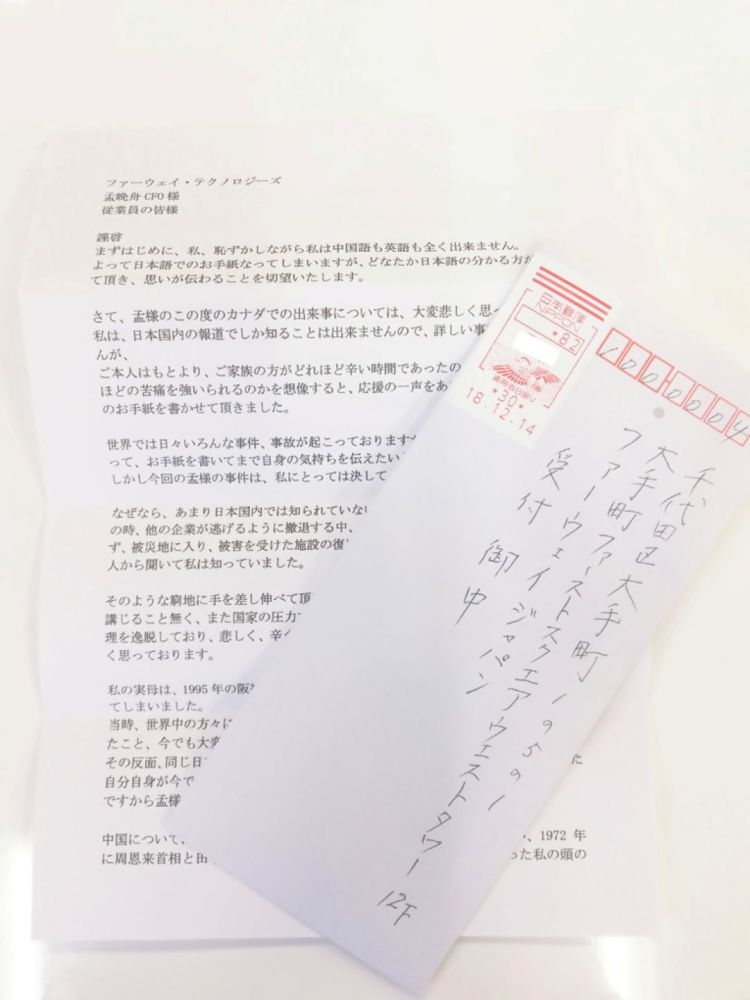 ファーウェイ・テクノロジーズ
孟晩舟CFO様
従業員の皆様
謹啓
まずはじめに、私、恥ずかしながら私は中国語も英語も全く出来ません。
よって日本語でのお手紙なってしまいますが、どなたか日本語の分かる方が
て頂き、思いが伝わることを切望いたします。
さて、孟様のこの度のカナダでの出来事については、大変悲しく思っ
私は、日本国内の報道でしか知ることは出来ませんので、詳しい事
んが、
ご本人はもとより、ご家族の方がどれほど辛い時間であったの
ほどの苦痛を強いられるのかを想像すると、応援の一声をあ
のお手紙を書かせて頂きました。
世界では日々いろんな事件、事故が起こっておりますが
って、お手紙を書いてまで自身の気持ちを伝えたい
しかし今回の孟様の事件は、私にとっては決して
なぜなら、あまり日本国内では知られていない
の時、他の企業が逃げるように撤退する中、
ず、被災地に入り、被害を受けた施設の復
人から聞いて私は知っていました。
そのような窮地に手を差し伸べて頂
講じること無く、また国家の圧力
理を逸脱しており、悲しく、辛く
く思っております。
私の実母は、1995年の阪
てしまいました。
当時、世界中の方々に
たこと、今でも大変
その反面、同じ日
た
自分自身が今で
ですから孟様
中国について、
、1972年
に周恩来首相と田
った私の頭の
日本郵便
NIPPON
*82
*30*
18.12.14
1000004
千代田区大手町1の5の1
大手町ファーストスクエアウエストタワー12F
ファーウェイジャパン
受付 御中